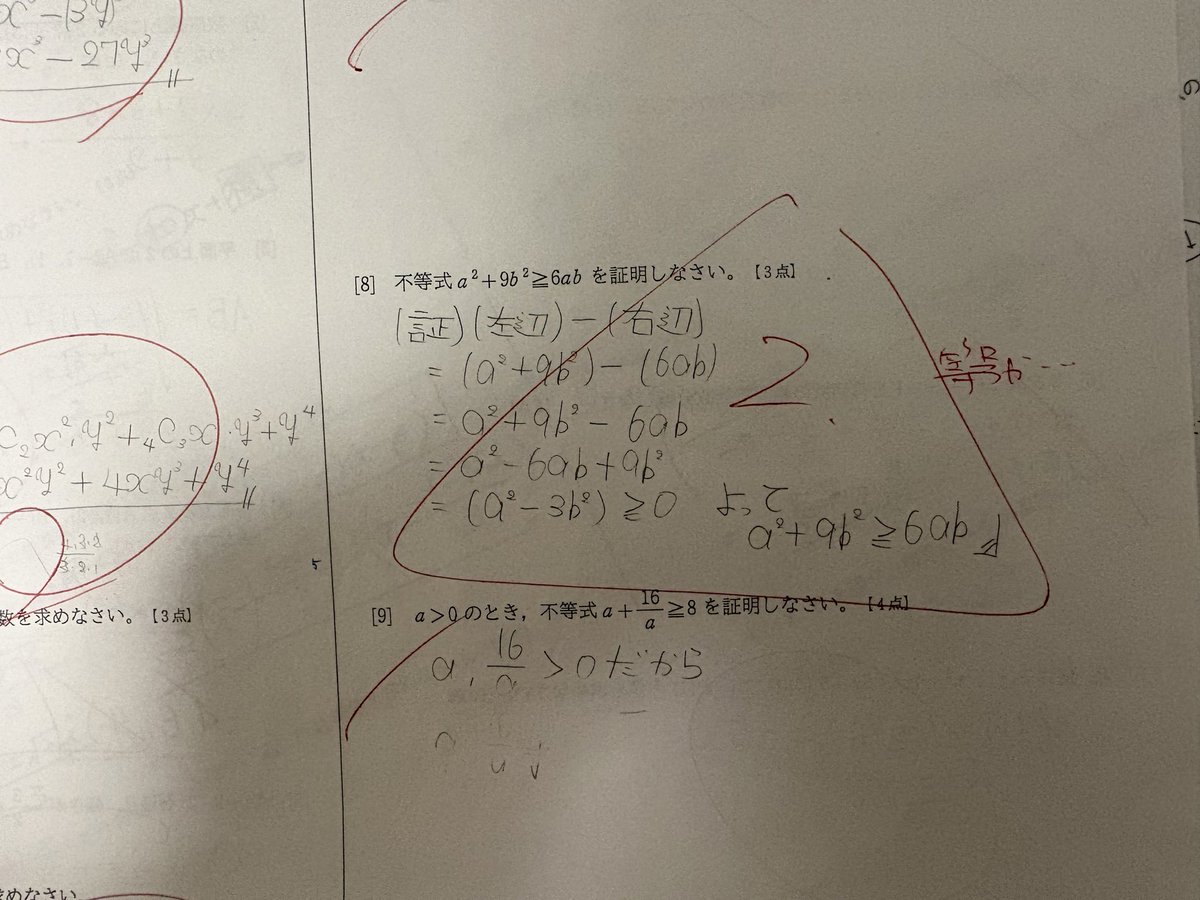 x³-(3y)³
x³-27y³
C₂x²・y²+₄C₃x・y³+y⁴
x²y²+4xy³+y⁴
4・3・2
3・2・1
数を求めなさい。【3点】
求めなさい
[8] 不等式 a²+9b²≧6ab を証明しなさい。【3点】
(証)(左辺)-(右辺)
=(a²+9b²)-(6ab)
=a²+9b²-6ab
=a²-6ab+9b²
=(a²-3b²)≧0 よって
a²+9b²≧6ab
2
等号が…
5
[9] a>0のとき,不等式 a+16/a≧8 を証明しなさい。【4点】
a, 16/a >0だから